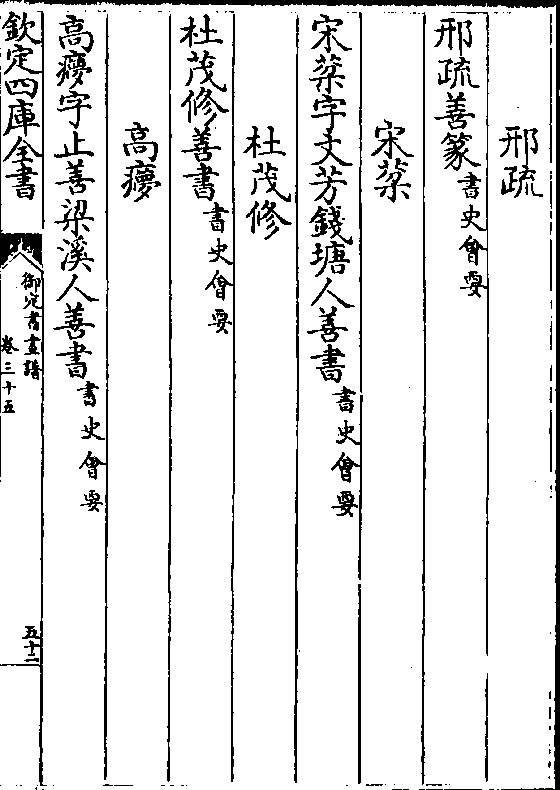 邢疏
邢疏善篆書史會要
宋棻
宋棻字文芳錢塘人善書書史會要
杜茂修
杜茂修善書書史會要
高㾕
高㾕字止善梁溪人善書書史會要
欽定四庫全書
御定書畫譜
卷三十五
五十二